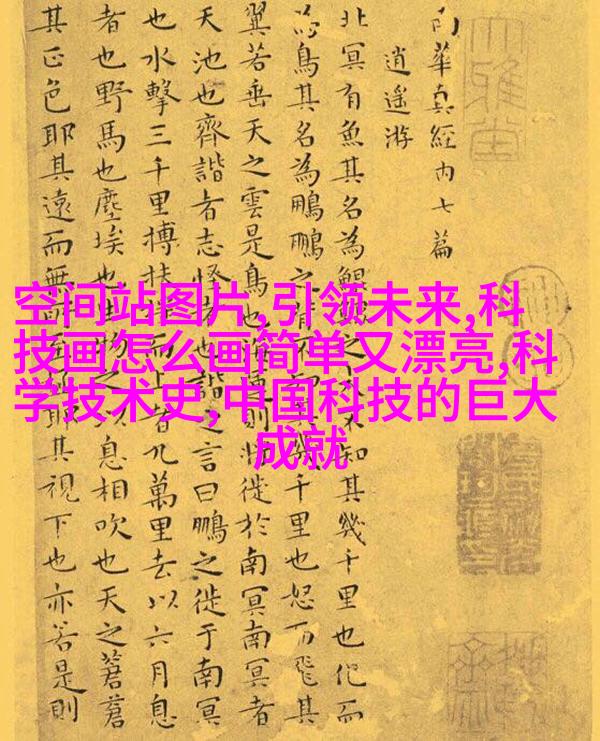 空间站图片,引领未来,科
技画怎么画简单又漂亮,科
学技术史,中国科技的巨大
成就
南華真經内七篇
逍遥游
北冥有魚其名為鯤鯤之大不知其幾千里也化而
為鳥其名為鵬鵬之背不知其幾千里也怒而飛其
翼若垂天之雲是鳥也海運則將徙於南冥南冥者
天池也齊諧者志怪者也諧之言曰鵬之徙于南冥
也水擊三千里搏扶摇而上者九萬里去以六月息
者也野馬也塵埃也生物之以息相吹也天之蒼蒼
其正色耶其遠而無所至極耶其視下也亦若是則
大雅堂